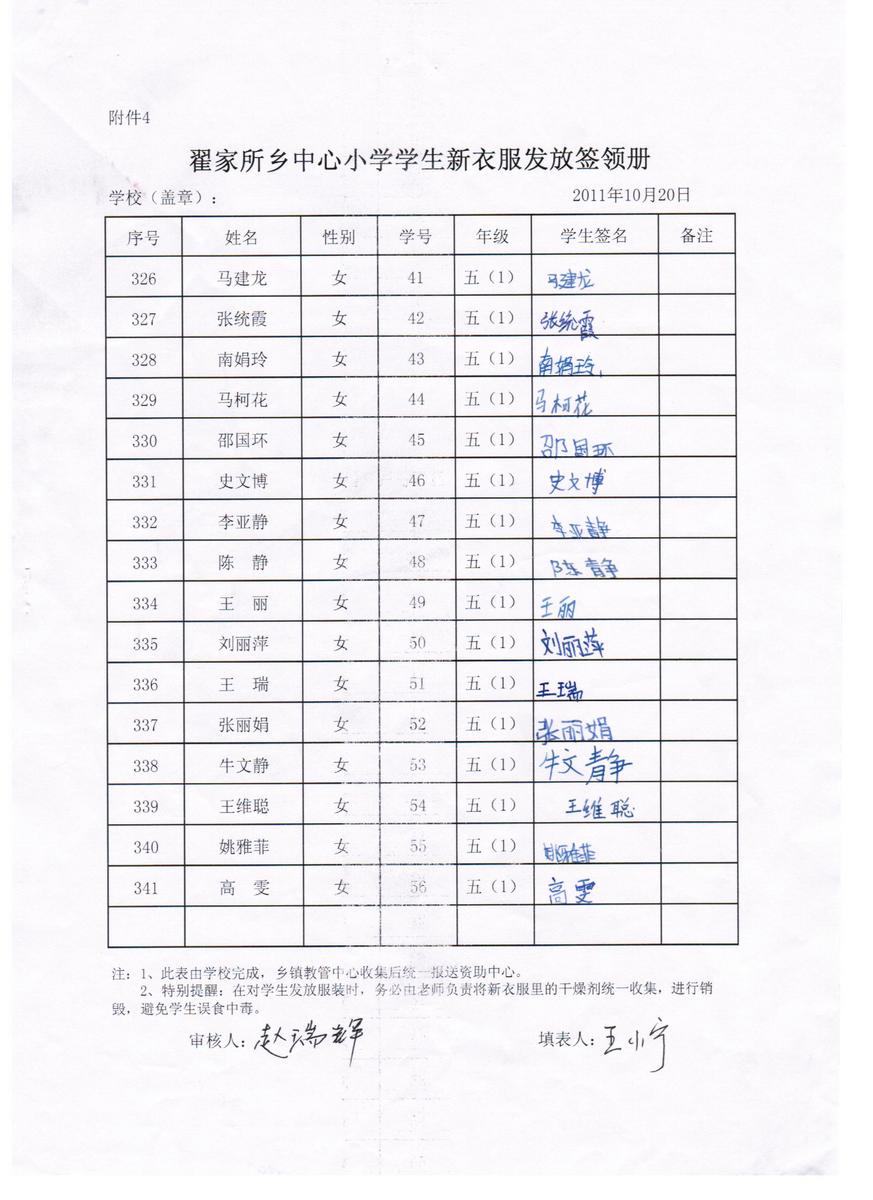 附件4
翟家所乡中心小学学生新衣服发放签领册
学校（盖章）： 2011年10月20日
序号 姓名 性别 学号 年级 学生签名 备注
326 马建龙 女 41 五（1） 马建龙
327 张统霞 女 42 五（1） 张统霞
328 南娟玲 女 43 五（1） 南娟玲
329 马柯花 女 44 五（1） 马柯花
330 邵国环 女 45 五（1） 邵国环
331 史文博 女 46 五（1） 史文博
332 李亚静 女 47 五（1） 李亚静
333 陈 静 女 48 五（1） 陈静
334 王 丽 女 49 五（1） 王丽
335 刘丽萍 女 50 五（1） 刘丽萍
336 王 瑞 女 51 五（1） 王瑞
337 张丽娟 女 52 五（1） 张丽娟
338 牛文静 女 53 五（1） 牛文静
339 王维聪 女 54 五（1） 王维聪
340 姚雅菲 女 55 五（1） 姚雅菲
341 高 雯 女 56 五（1） 高雯
注：1、此表由学校完成，乡镇教管中心收集后统一报送资助中心。
2、特别提醒：在对学生发放服装时，务必由老师负责将新衣服里的干燥剂统一收集，进行销
毁，避免学生误食中毒。
审核人：赵瑞辉 填表人：王小宁